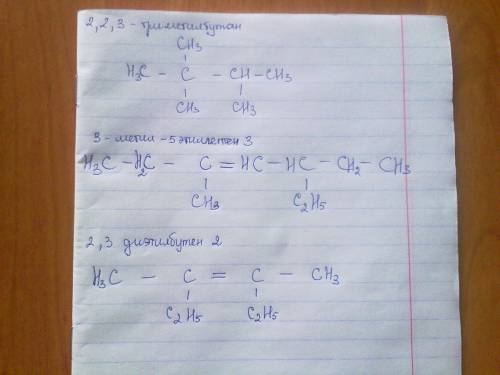 2,2,3 - триметилбутан
CH₃
H₃C - C - CH - CH₃
CH₃ CH₃
3 - метил - 5 этилгептен 3
H₃C - H₂C - C = HC - HC - CH₂ - CH₃
CH₃ C₂H₅
2,3 диэтилбутен 2
H₃C - C = C - CH₃
C₂H₅ C₂H₅